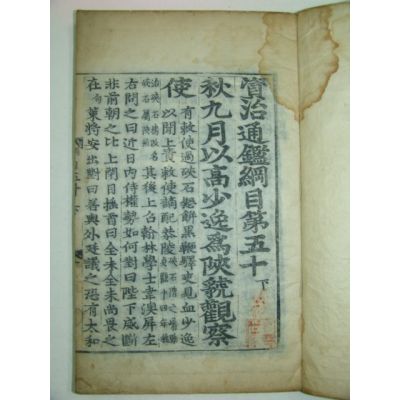 資治通鑑綱目第五十 下
秋九月以高少逸爲陝虢觀察
使 有敕使過硤石怒餅黑鞭驛吏見血少逸
以聞上責敕使謫配恭陵
其後上召翰林學士韋澳屏左
右問之曰近日內侍權勢如何對曰陛下威斷
非前朝之比上閉目搖首曰全未全未尚畏之
在 策將安出對曰若與外廷議之恐有太和